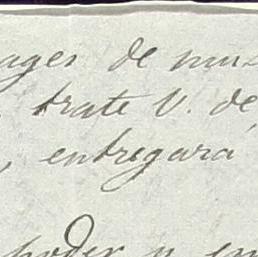 ages de mus
trate V. de
, entregará
poder y en